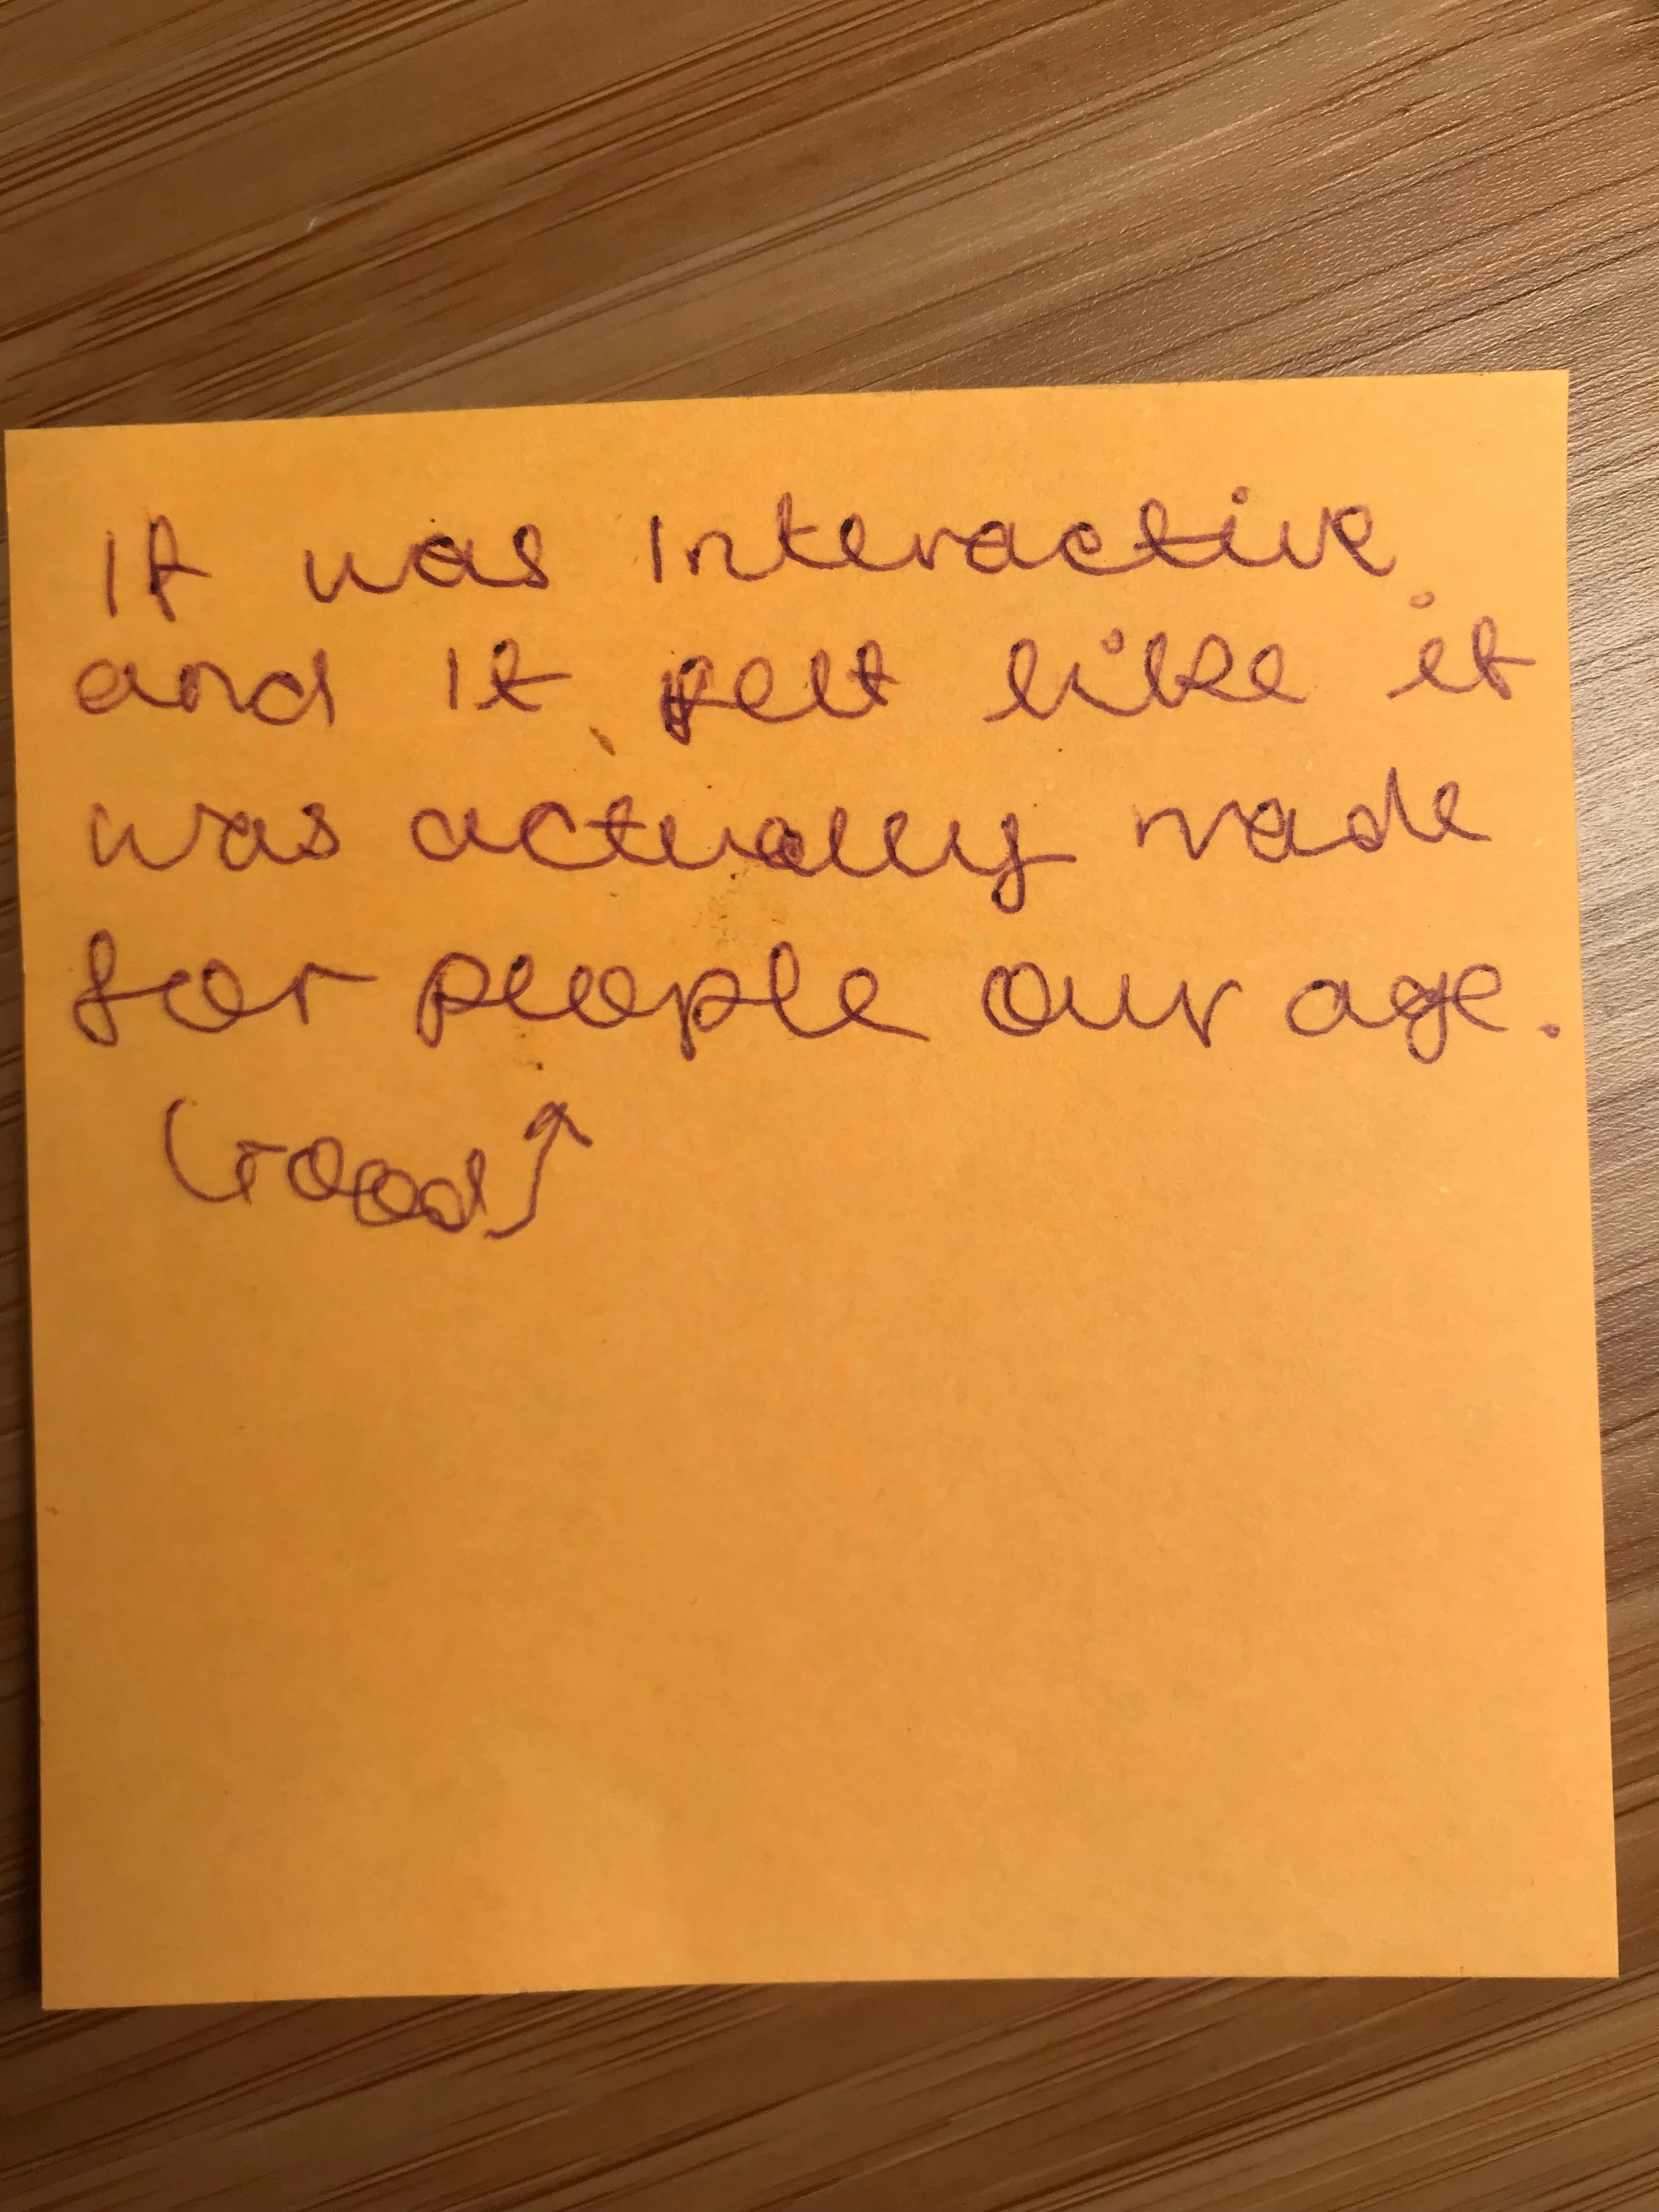 It was interactive
and it felt like it
was actually made
for people our age.
Good ↑